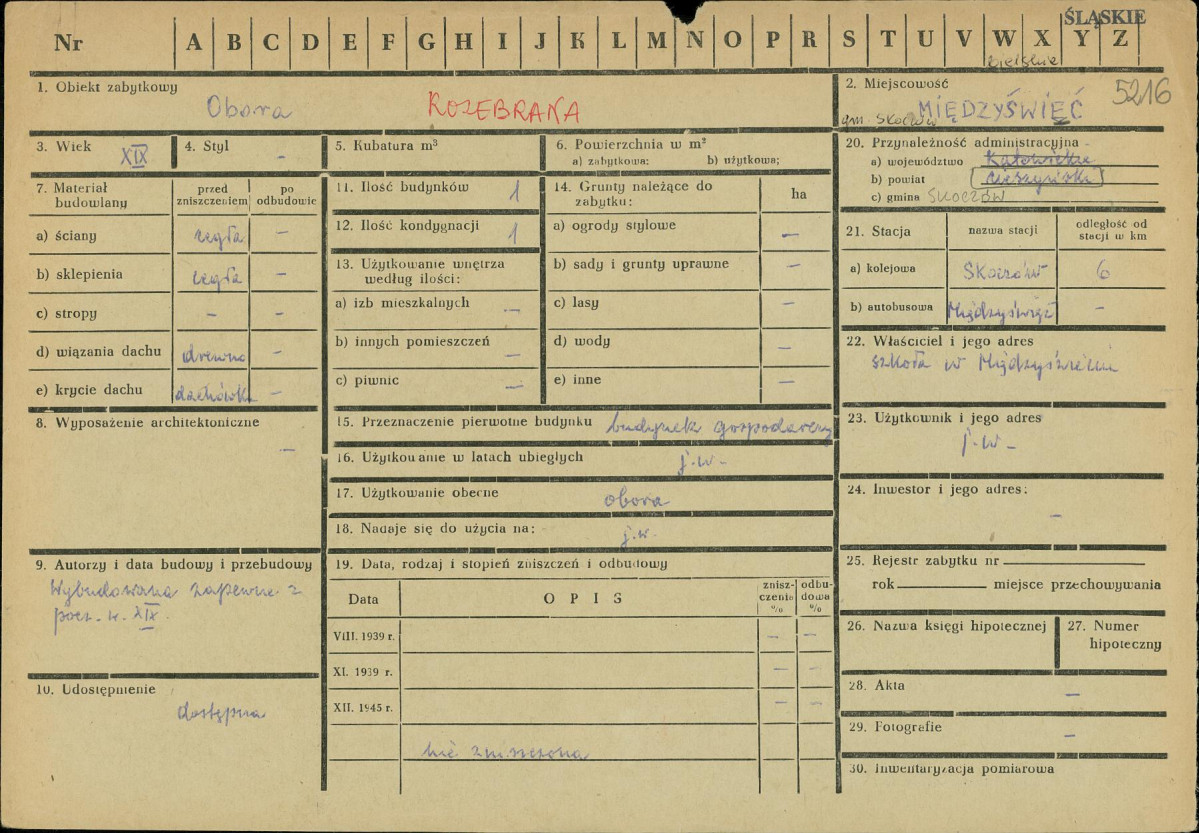 ŚLĄSKIE
Nr A B C D E F G H I J K L M N O P R S T U V W X Y Z
bielskie
1. Obiekt zabytkowy
Obora ROZEBRANA
2. Miejscowość 5216
gm. Skoczów MIĘDZYŚWIEĆ
3. Wiek XIX
4. Styl –
5. Kubatura m³
6. Powierzchnia w m²
a) zabytkowa: b) użytkowa;
20. Przynależność administracyjna
a) województwo Katowickie
b) powiat cieszyński
c) gmina SKOCZÓW
7. Materiał budowlany
przed zniszczeniem
po odbudowie
a) ściany cegła –
b) sklepienia cegła –
c) stropy – –
d) wiązania dachu drewno –
e) krycie dachu dachówka –
11. Ilość budynków 1
12. Ilość kondygnacji 1
13. Użytkowanie wnętrza
według ilości:
a) izb mieszkalnych –
b) innych pomieszczeń –
c) piwnic –
14. Grunty należące do
zabytku: ha
a) ogrody stylowe –
b) sady i grunty uprawne –
c) lasy –
d) wody –
e) inne –
21. Stacja
nazwa stacji
odległość od
stacji w km
a) kolejowa Skoczów 6
b) autobusowa Międzyświeć –
22. Właściciel i jego adres
szkoła w Międzyświeciu
8. Wyposażenie architektoniczne
–
15. Przeznaczenie pierwotne budynku budynek gospodarczy
16. Użytkowanie w latach ubiegłych j.w. –
17. Użytkowanie obecne obora
18. Nadaje się do użycia na: j.w.
23. Użytkownik i jego adres
j.w –
24. Inwestor i jego adres:
–
9. Autorzy i data budowy i przebudowy
Wybudowana zapewne z
pocz. w. XIX.
19. Data, rodzaj i stopień zniszczeń i odbudowy
Data OPIS
znisz-
czenia
%
odbu-
dowa
%
VIII. 1939 r. – –
XI. 1939 r. – –
XII. 1945 r. – –
nie zniszczona
25. Rejestr zabytku nr
rok miejsce przechowywania
26. Nazwa księgi hipotecznej
27. Numer
hipoteczny
10. Udostępnienie
dostępna
28. Akta –
29. Fotografie –
30. Inwentaryzacja pomiarowa